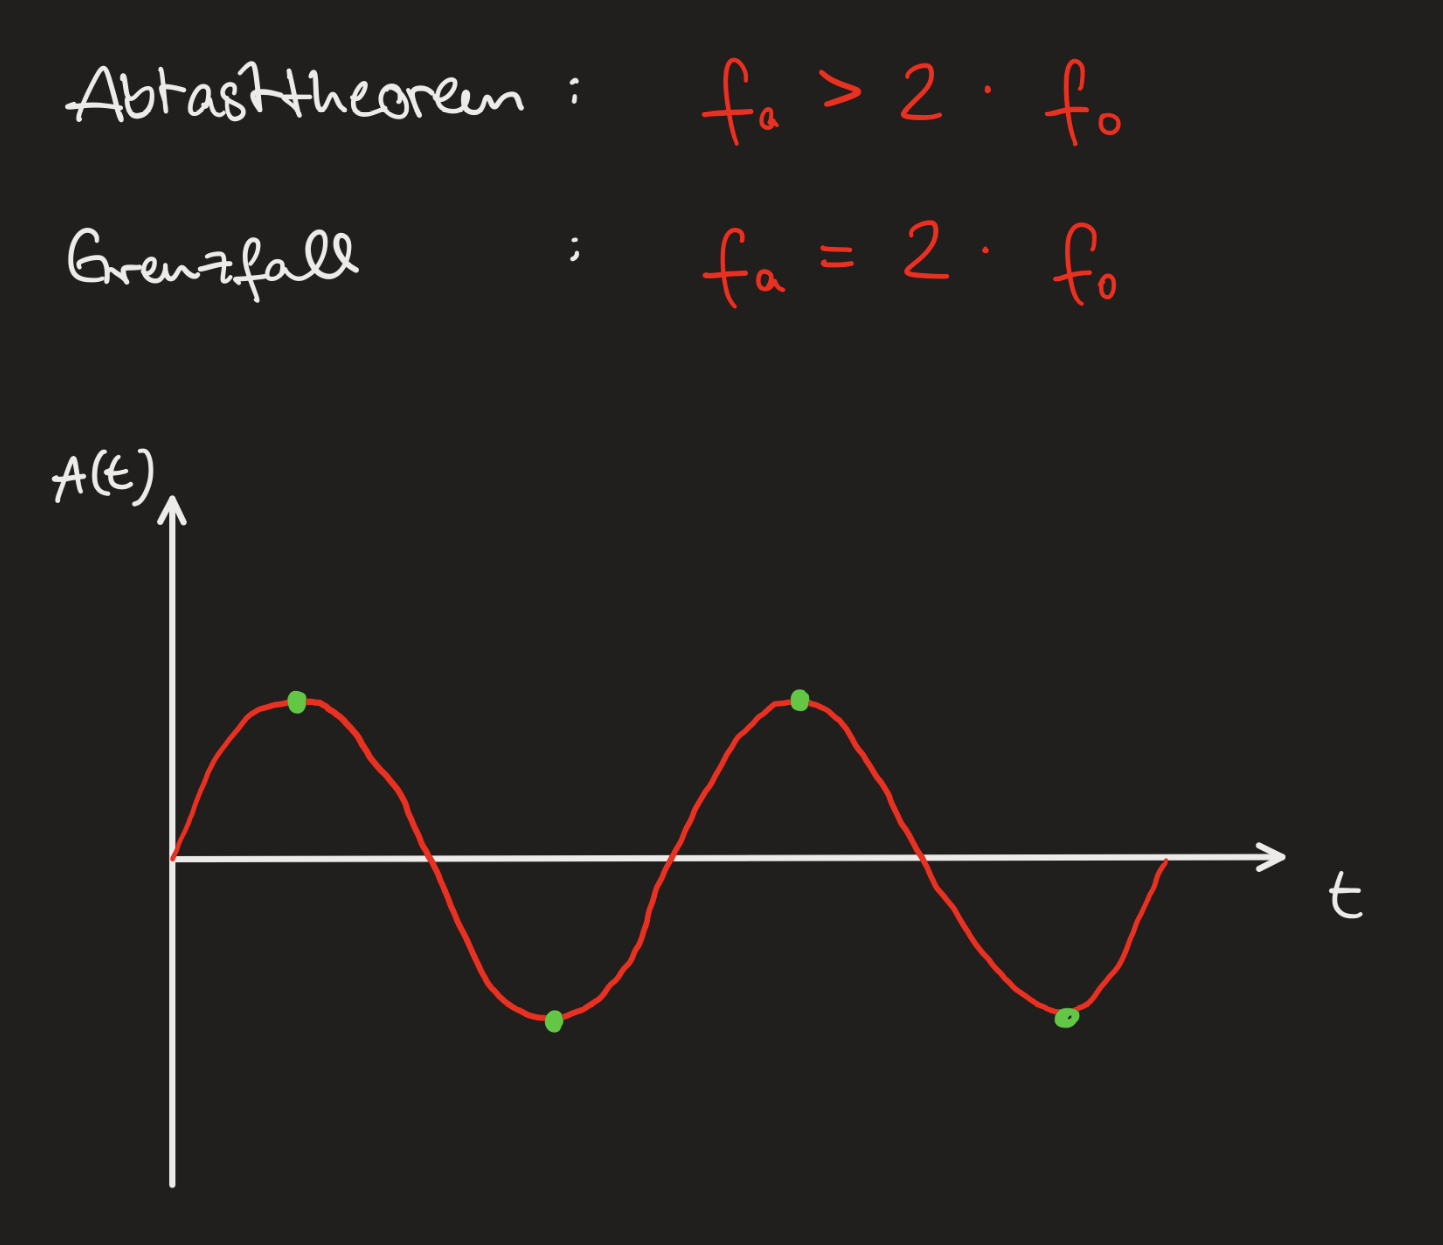 Abtasttheorem : fa > 2 · f0
Grenzfall : fa = 2 · f0
A(t)
t